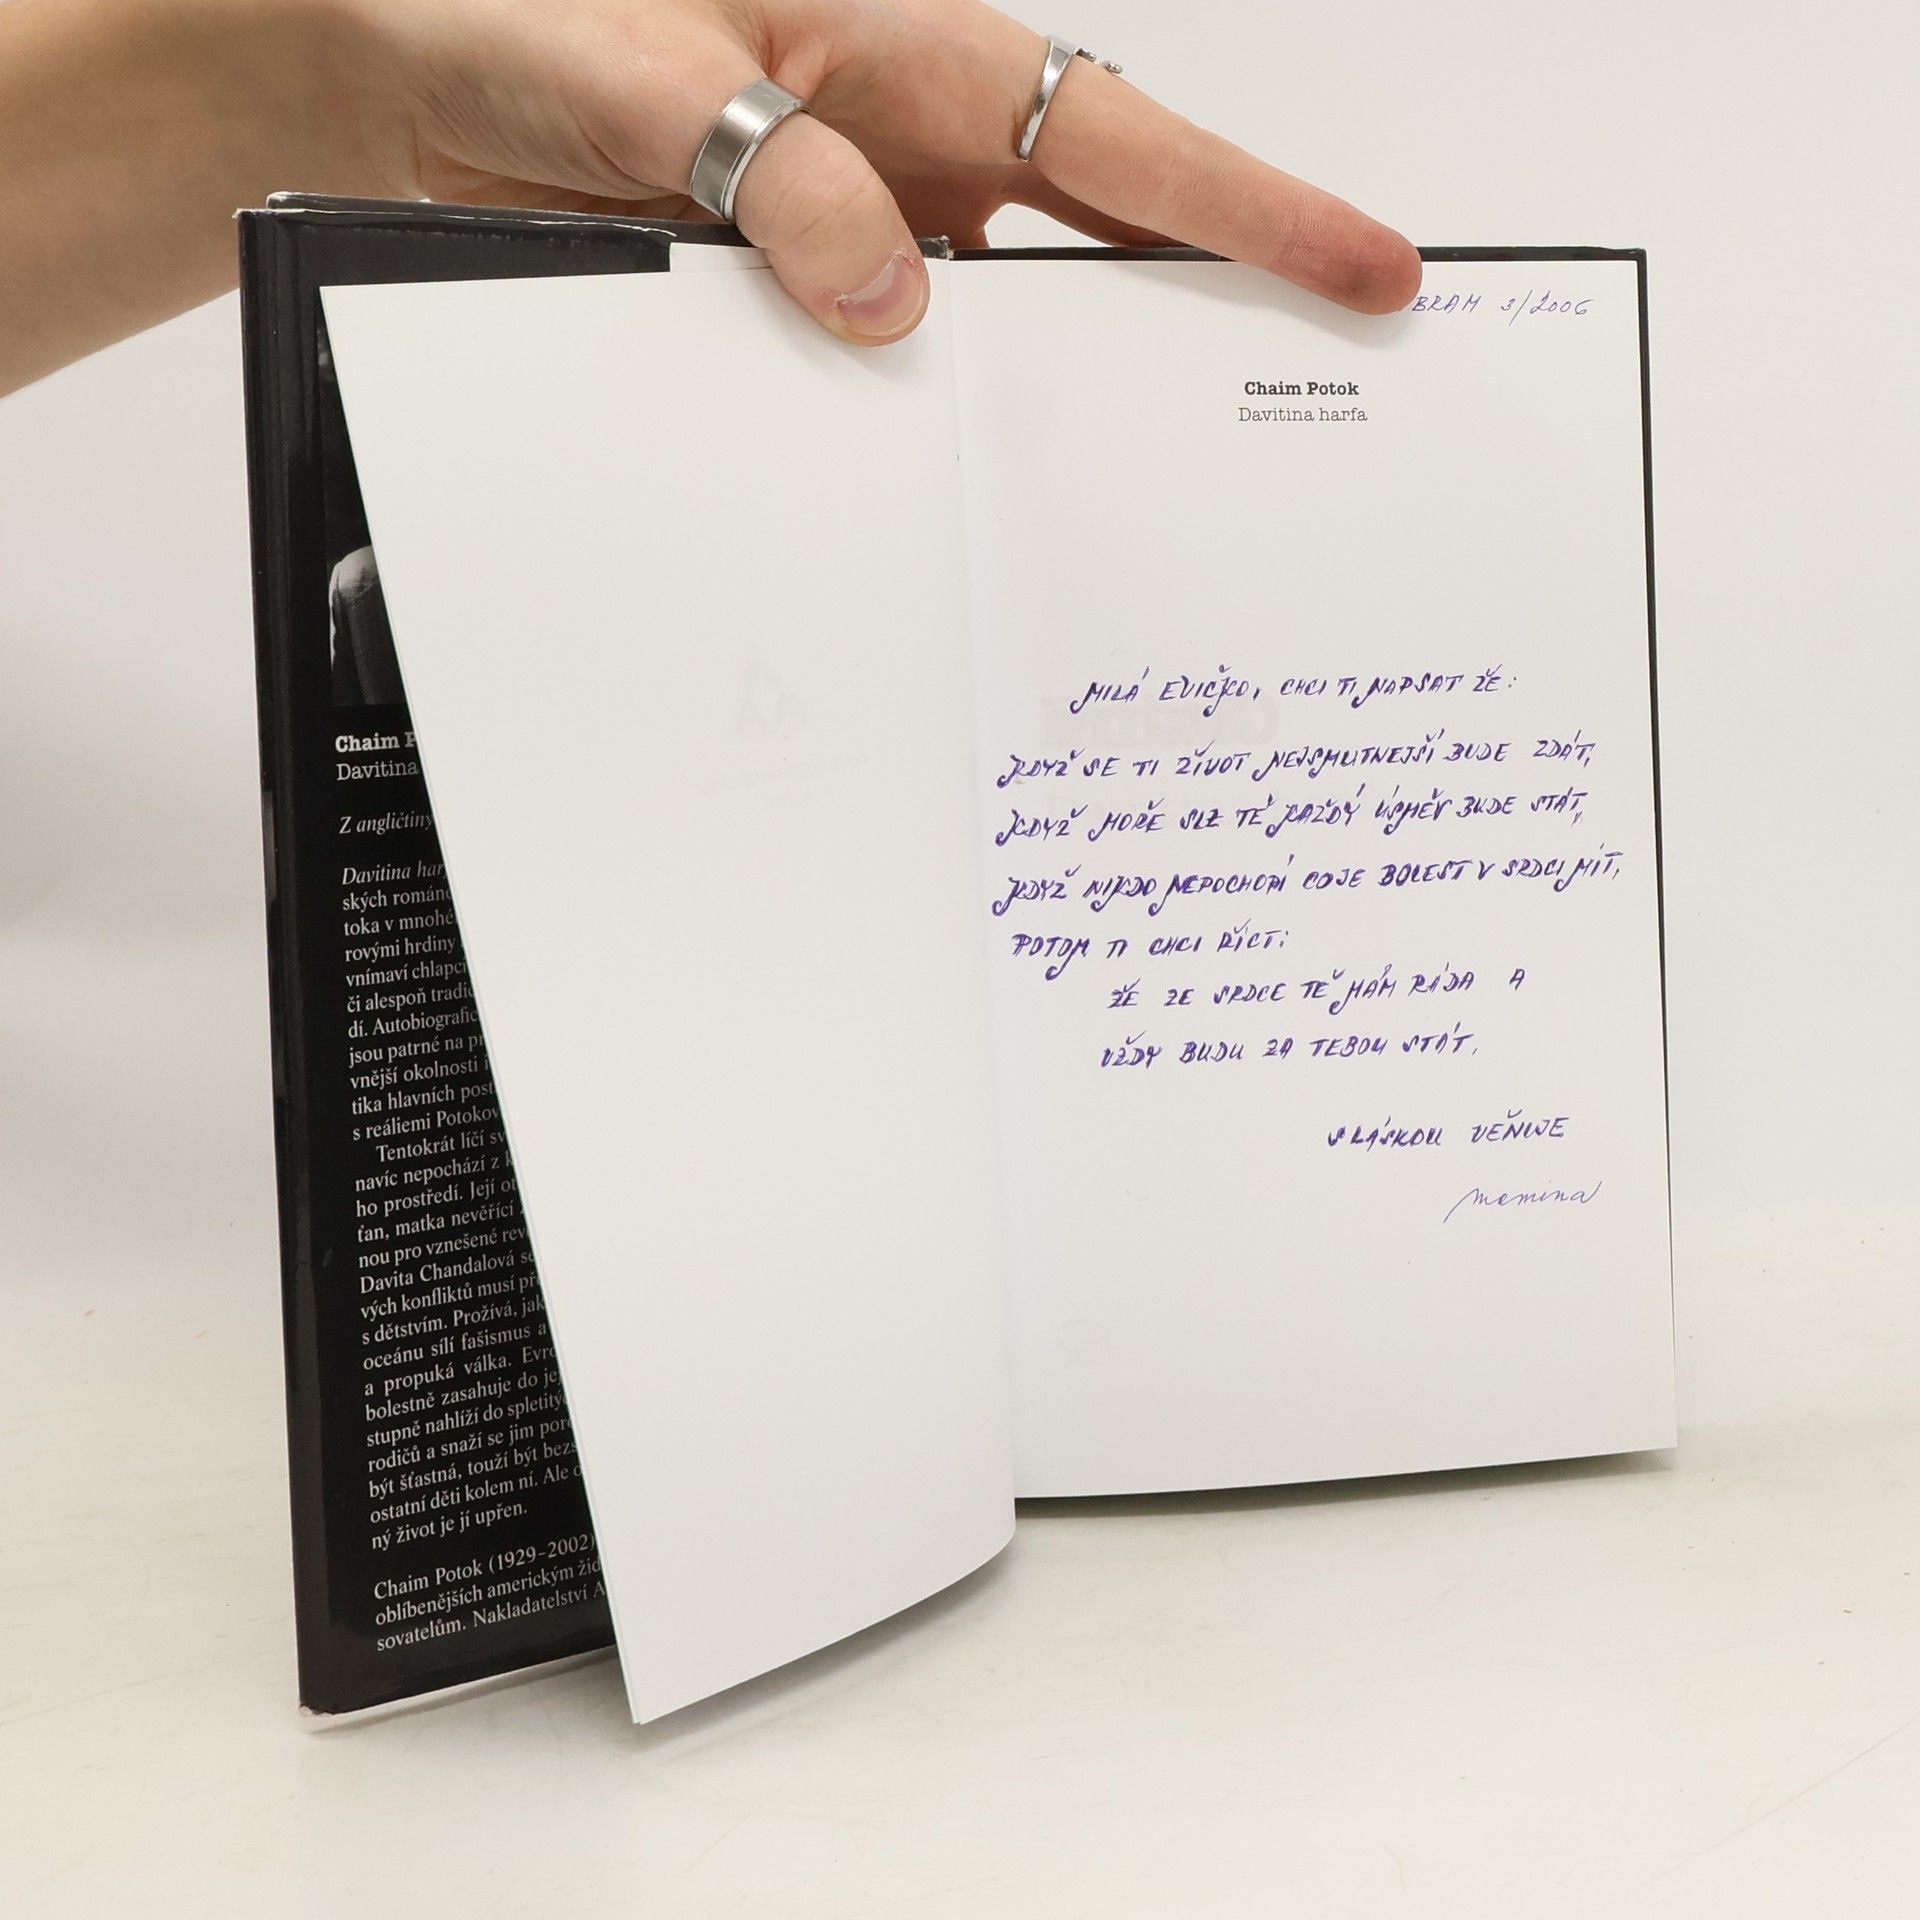 Chaim P
Davitina
Z angličtiny
Davitina har
ských románo
toka v mnohé
rovými hrdiny
vnímaví chlapci
či alespoň tradic
dí. Autobiografic
jsou patrné na p
vnější okolnosti i
tika hlavních post
s reáliemi Potokov
Tentokrát líčí sv
navíc nepochází z k
ho prostředí. Její ot
ťan, matka nevěřící
nou pro vznešené rev
Davita Chandalová se
vých konfliktů musí př
s dětstvím. Prožívá, jak
oceánu sílí fašismus a
a propuká válka. Evro
bolestně zasahuje do je
stupně nahlíží do spletitý
rodičů a snaží se jim poro
být šťastná, touží být bezs
ostatní děti kolem ní. Ale o
ný život je jí upřen.
Chaim Potok (1929–2002)
oblíbenějších americkým žid
sovatelům. Nakladatelství A
BRAM 3/2006
Chaim Potok
Davitina harfa
MILÁ EVIČKO, CHCI TI NAPSAT ŽE:
KDYŽ SE TI ŽIVOT NEJSMUTNEJŠÍ BUDE ZDÁT,
KDYŽ MOŘE SLZ TĚ KAŽDÝ ÚSMĚV BUDE STÁT,
KDYŽ NIKDO NEPOCHOPÍ CO JE BOLEST V SRDCI MÍT,
POTOM TI CHCI ŘÍCT:
ŽE ZE SRDCE TĚ MÁM RÁDA A
VŽDY BUDU ZA TEBOU STÁT.
S LÁSKOU VĚNUJE
mamina